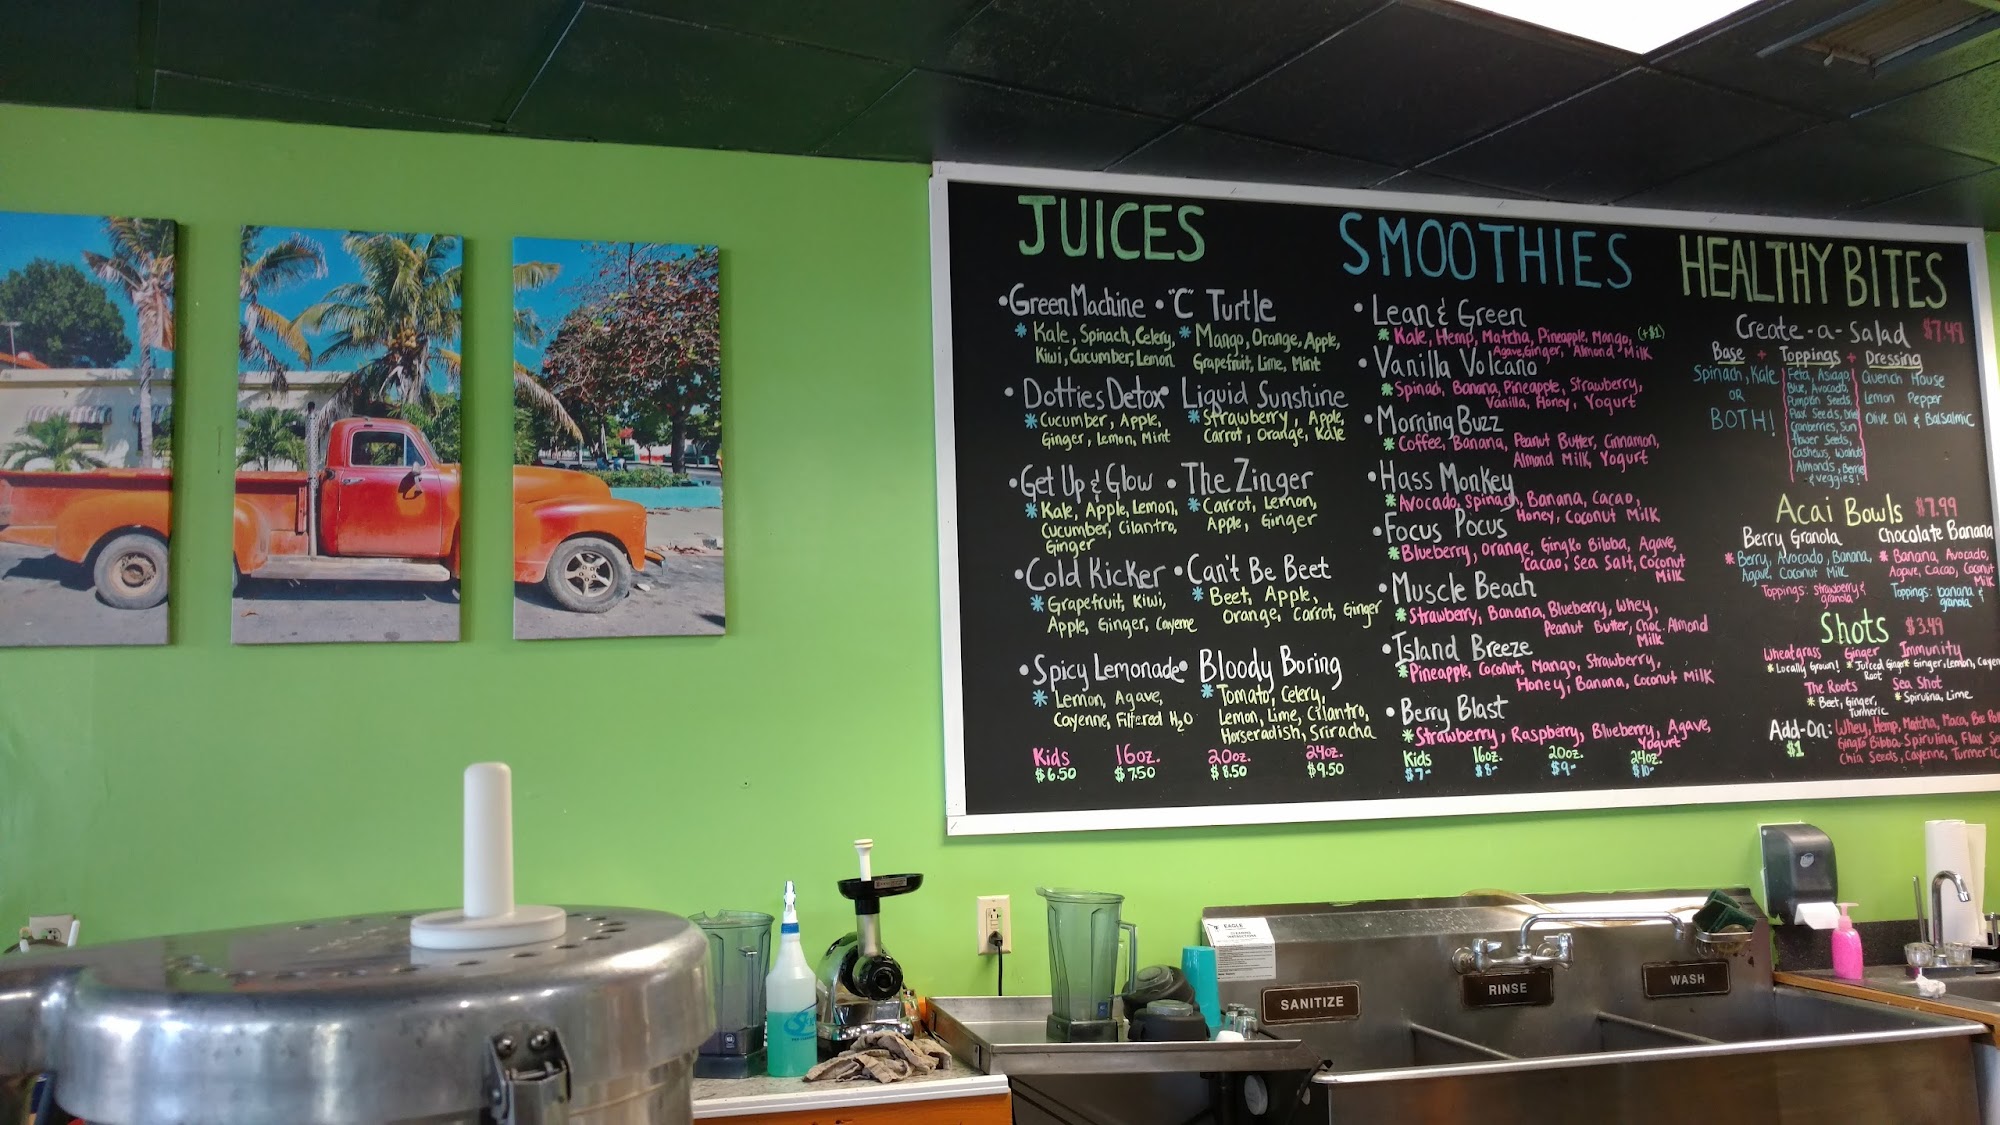 JUICES
•Green Machine
* Kale, Spinach, Celery,
Kiwi, Cucumber, Lemon
• "C" Turtle
* Mango, Orange, Apple,
Grapefruit, Lime, Mint
• Dotties Detox
* Cucumber, Apple,
Ginger, Lemon, Mint
• Liquid Sunshine
* Strawberry, Apple,
Carrot, Orange, Kale
• Get Up & Glow
* Kale, Apple, Lemon,
Cucumber, Cilantro,
Ginger
• The Zinger
* Carrot, Lemon,
Apple, Ginger
• Cold Kicker
* Grapefruit, Kiwi,
Apple, Ginger, Cayenne
• Can't Be Beet
* Beet, Apple,
Orange, Carrot, Ginger
• Spicy Lemonade
* Lemon, Agave,
Cayenne, Filtered H2O
• Bloody Boring
* Tomato, Celery,
Lemon, Lime, Cilantro,
Horseradish, Sriracha
Kids 16oz. 20oz. 24oz.
$6.50 $7.50 $8.50 $9.50
SMOOTHIES
• Lean & Green
* Kale, Hemp, Matcha, Pineapple, Mango, (+$1)
Agave, Ginger, Almond Milk
• Vanilla Volcano
* Spinach, Banana, Pineapple, Strawberry,
Vanilla, Honey, Yogurt
• Morning Buzz
* Coffee, Banana, Peanut Butter, Cinnamon,
Almond Milk, Yogurt
• Hass Monkey
* Avocado, Spinach, Banana, Cacao,
Honey, Coconut Milk
• Focus Pocus
* Blueberry, Orange, Gingko Biloba, Agave,
Cacao, Sea Salt, Coconut
Milk
• Muscle Beach
* Strawberry, Banana, Blueberry, Whey,
Peanut Butter, Choc. Almond
Milk
• Island Breeze
* Pineapple, Coconut, Mango, Strawberry,
Honey, Banana, Coconut Milk
• Berry Blast
* Strawberry, Raspberry, Blueberry, Agave,
Yogurt
Kids 16oz. 20oz. 24oz.
$7- $8- $9- $10-
HEALTHY BITES
Create-a-Salad $7.49
Base + Toppings + Dressing
Spinach, Kale
OR
BOTH!
Feta, Asiago,
Blue, Avocado,
Pumpkin Seeds,
Flax Seeds, Dried
Cranberries, Sun
flower Seeds,
Cashews, Walnuts
Almonds, Berries
& veggies!
Quench House
Lemon Pepper
Olive Oil & Balsalmic
Acai Bowls $7.99
Berry Granola
* Berry, Avocado, Banana,
Agave, Coconut Milk
Toppings: Strawberry &
granola
Chocolate Banana
* Banana, Avocado,
Agave, Cacao, Coconut
Milk
Toppings: banana &
granola
Shots $3.49
Wheatgrass
* Locally Grown!
Ginger
* Juiced Ginger
Root
Immunity
* Ginger, Lemon, Cayen
The Roots
* Beet, Ginger,
Turmeric
Sea Shot
* Spirulina, Lime
Add-On: Whey, Hemp, Matcha, Maca, Bee Pol
$1 Gingko Bilba, Spirulina, Flax Se
Chia Seeds, Cayenne, Turmeric
EAGLE
SANITIZE
RINSE
WASH